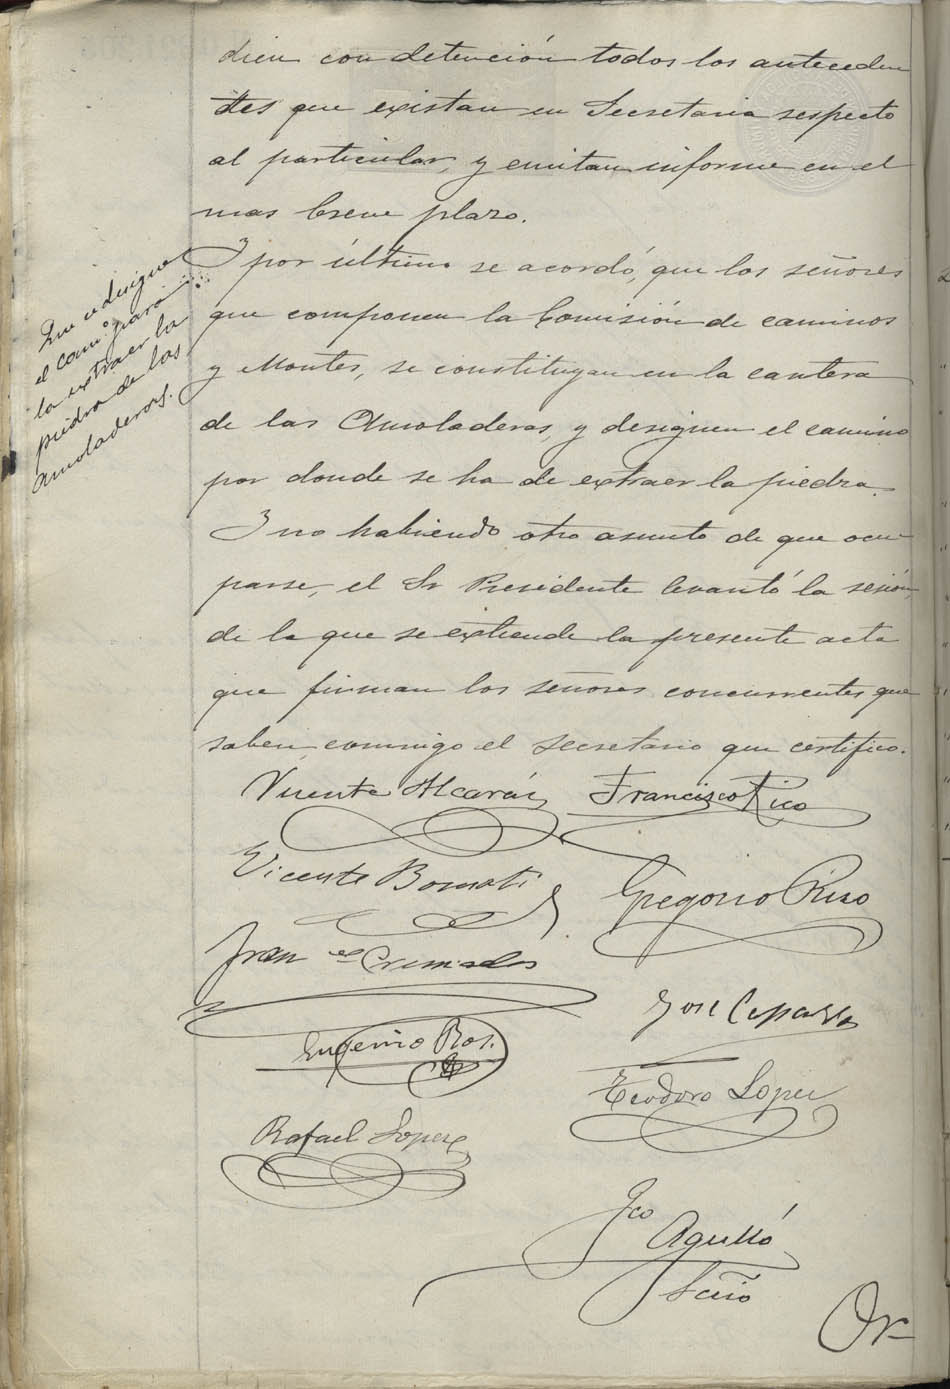 dien con detención todos los anteceden
tes que existan en Secretaria respecto
al particular, y emitan informe en el
mas breve plazo.
Y por último se acordó, que los señores
que componen la Comisión de caminos
y Montes, se constituyan en la cantera
de las Amoladeras, y designen el camino
por donde se ha de extraer la piedra.
Que se designe
el camº para
la extraer la
piedra de las
Amoladeras.
Y no habiendo otro asunto de que ocu
parse, el Sr Presidente levantó la sesión,
de la que se extiende la presente acta
que firman los señores concurrentes que
saben conmigo el Secretario que certifico.
Vicente Alcaráz Francisco Rico
Vicente Bornati
Gregorio Rico
Franco Cremades
José
Eugenio Ros.
Teodoro Lopez
Rafael Lopez
Fco Agulló
Srio
Or